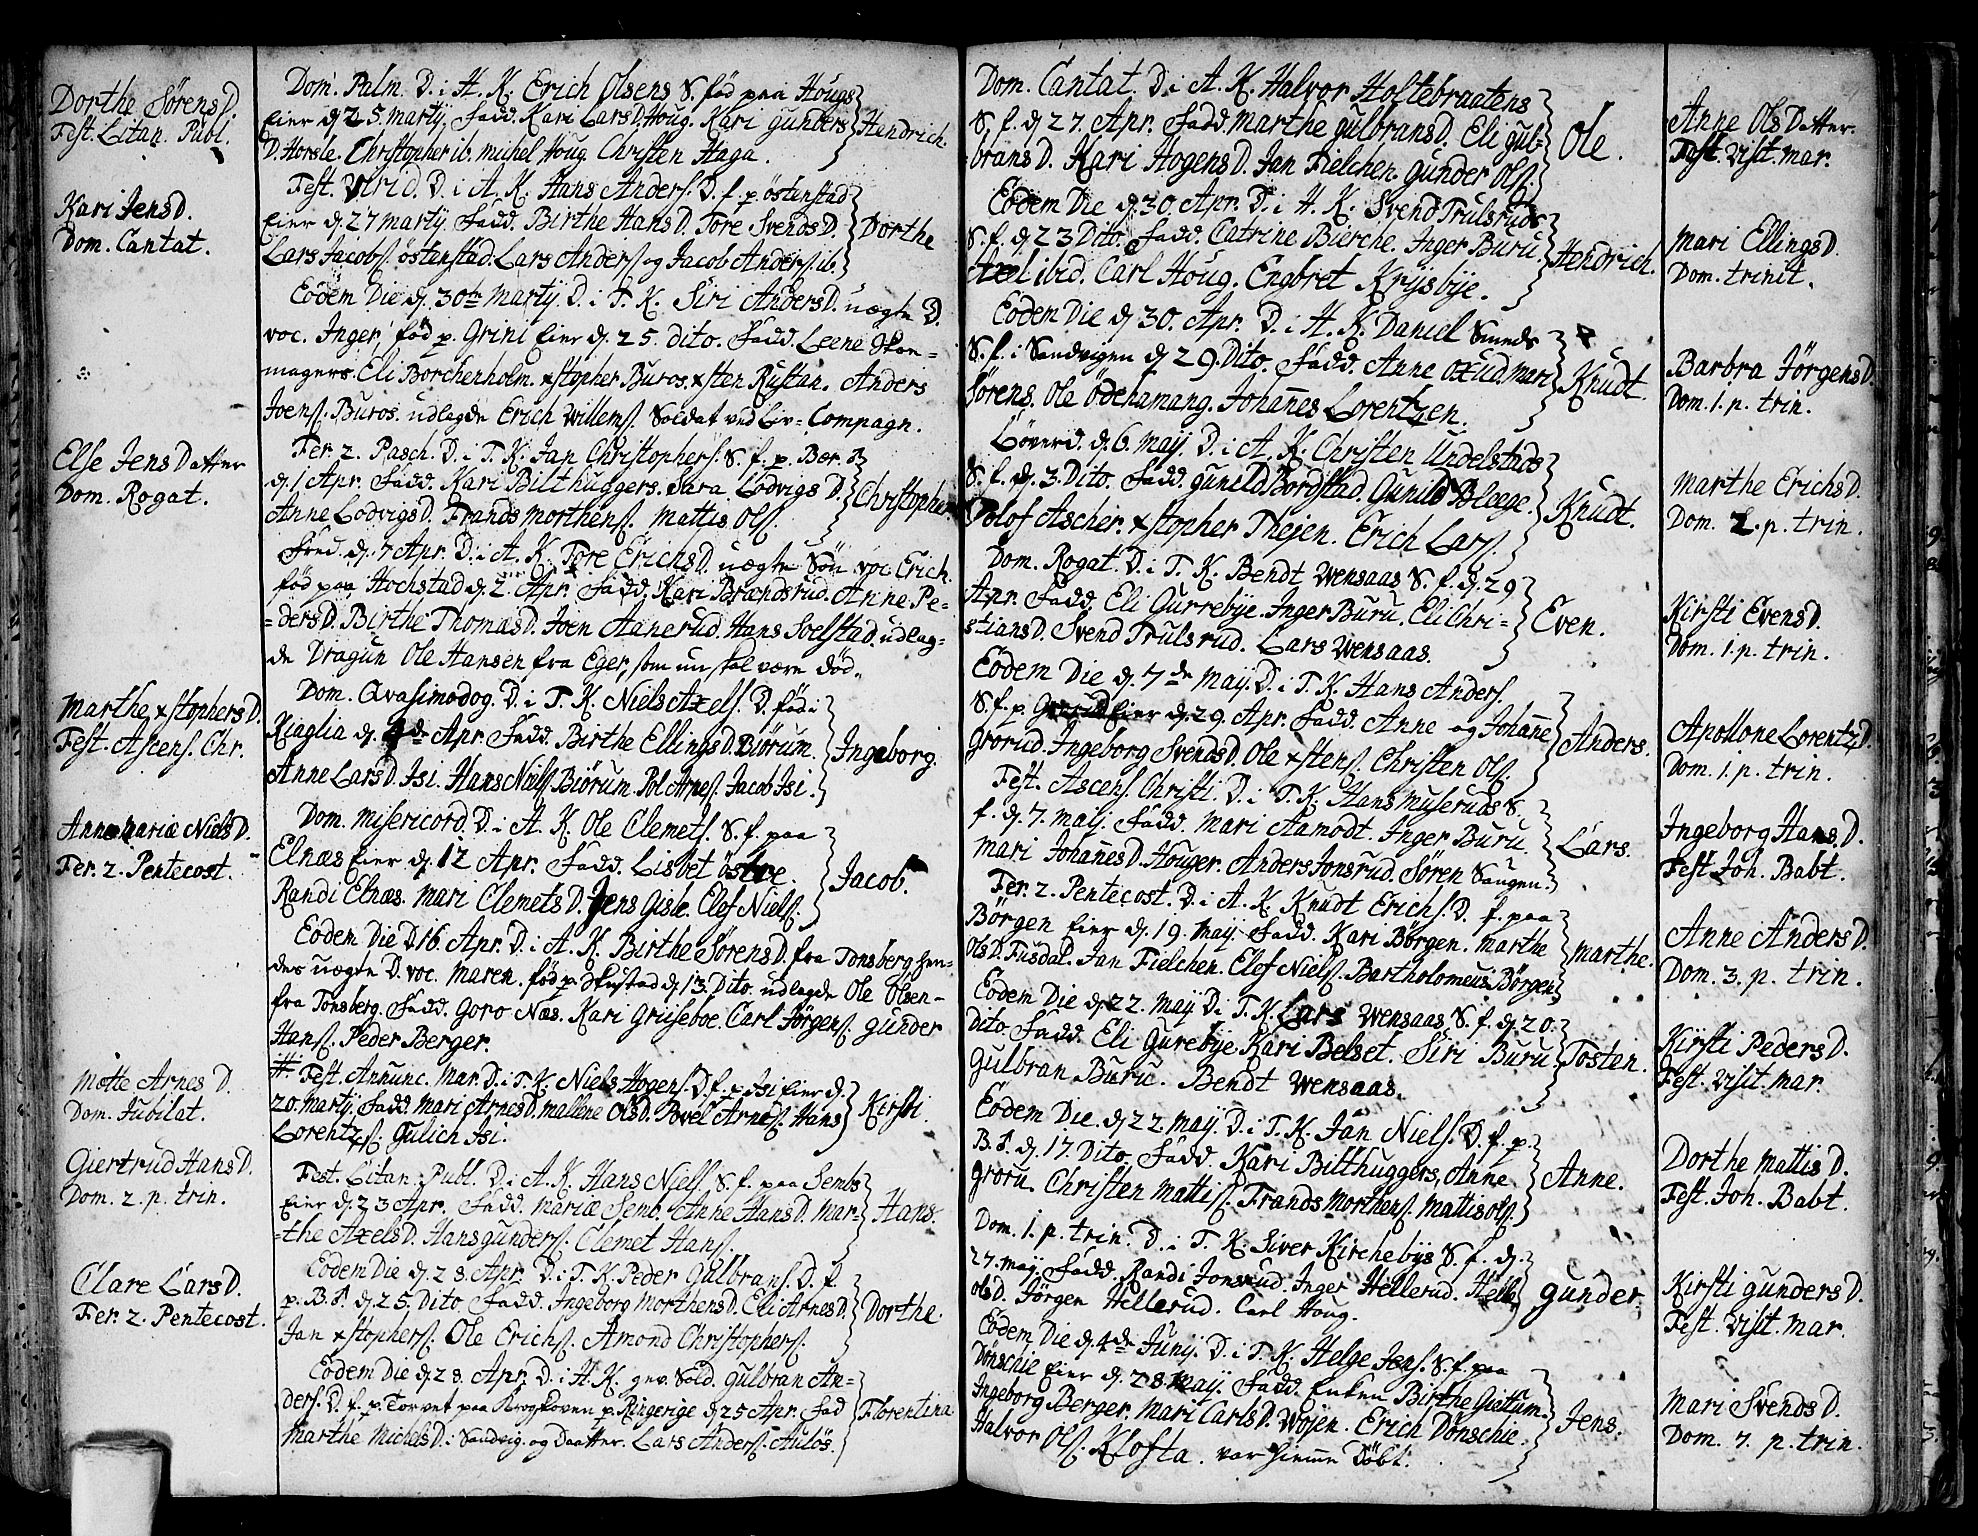 Dorthe SörensD.
Fest. Litan. Publ.
Kari JensD.
Dom. Cantat.
Else JensDatter
Dom. Rogat.
Marthe xstophersD.
Fest. Ascens. Chr.
Anne Mariæ NielsD.
Fer. 2. Pentecost.
Motte Arnes D.
Dom. Jubilat.
Giertrud HansD.
Dom. 2. p. trin.
Clare LarsD.
Fer. 2. Pentecost.
Dom. Palm. D. i H. K. Erich Olsens S. fød paa Hougs
Eier d. 25. Martij. Fadd. Kari LarsD. Houg. Kari Gunders
D. Horsle. Christopher ib. Michel Houg. Christen Haga.
Hendrich.
Fest. Virid. D. i A. K. Hans Anders. D. f. p. östenstad
Eier d. 27 Martij. Fadd. Birthe HansD. Tore SvendsD.
Lars Jacobs. östenstad. Lars Anders. og Jacob Anders. ib.
Dorthe
Eodem Die d. 30te Martij. D. i T. K. Siri AndersD. uægte D.
voc. Inger, fød p. Grini Eier d. 25. dito. Fadd. Leene Skoe=
magers. Eli Borchenholm. xstopher Buros. xsten Rustan. Anders
Joens. Buros. udlagde Erich Willems. Soldat ved Liv=Compagn.
Fer. 2. Pasch. D. i T. K. Jan Christophers. S. f. p. Bær.
d. 1 Apr. Fadd. Kari Bilthuggers. Sara LodvigsD.
Anne LodvigsD. Frands Morthens. Mattis Ols.
Christopher
d. 7 Apr. D. i A. K. Tore ErichsD. uægte Sön voc. Erich
fød paa Hochstad d. 2 Apr. Fadd. Kari Brændsrud. Anne Pe=
=dersD. Birthe ThomasD. Joen Aanerud. Hans Soelstad. udlag=
de Dragun Ole Hansen fra Eger, som nu skal være død.
Dom. Qvasimodog. D. i T. K. Niels Axels. D. föd i
Kiaglia d. 4de Apr. Fadd. Birthe EllingsD. Biørum.
Anne LarsD. Isi. Hans Niels. Biörum. Pol Arnes. Jacob Isi.
Ingeborg
Dom. Misericord. D. i A. K. Ole Clemets. S. f. paa
Elnæs Eier d. 12 Apr. Fadd. Lisbet östre.
Randi Elnæs. Mari ClemetsD. Jens Gisle. Elef Niels.
Jacob.
Eodem Die D. 16. Apr. D. i A. K. Birthe SörensD. fra Tonsberg hen=
des uægte D. voc. Maren, fød p. Skustad d. 13. Dito. udlagde Ole Olsen=
fra Tonsberg. Fadd. Goro Næs. Kari Griseboe. Carl Jörgens. Gunder
Hans. Peder Berger.
#. Fest. Annunc. Mar. D. i T. K. Niels Hogens. D. f. p. Isi Eier d.
20. Martij. Fadd. Mari ArnesD. Mallene OlsD. Povel Arnes. Hans
Lorentzs. Gulich Isi.
Kirsti
Fest. Litan. Publ. D. i A. K. Hans Niels. S. f. paa Sembs
Eier d. 23 Apr. Fadd. Mariæ Semb. Anne HansD. Mar=
=the AxelsD. Hans Gunders. Clemet Hans.
Hans.
Eodem Die d. 28. Apr. D. i T. K. Peder Gulbrans. D. f.
p. B. d. 25. Dito. Fadd. Ingeborg MorthensD. Eli ArnesD.
Jan xstophers. Ole Erichs. Amond Christophers.
Dorthe.
Eodem Die d. 28. Apr. D. i H. K. gev. Sold. Gulbran An=
ders. D. f. p. Torvet paa Krogskoven p. Ringerige d. 25 Apr. Fad
Marthe MichelsD. i Sandvig. og Daatter. Lars Anders. Aulös.
Florentina
Dom. Cantat. D. i A. K. Halvor Holtebraatens
S. f. d. 27. Apr. Fadd. Marthe GulbransD. Eli Gul=
bransD. Kari HogensD. Jan Fielchen. Gunder Ols.
Ole.
Eodem Die d. 30. Apr. D. i H. K. Svend Trulsruds
S. f. d. 23 Dito. Fadd. Catrine Bierche. Inger Buru.
Axel ibid. Carl Houg. Engbret Krysbye.
Hendrich.
Eodem Die d. 30. Apr. D. i H. K. Daniel Smeds
S. f. i Sandvigen d. 29. Dito. Fadd. Anne oxud. Mari
Sörens. Ole Ödehamang. Johannes Lorentzen.
Knudt
Löverd. d. 6. Maij. D. i A. K. Christen Undelstads
S. f. d. 3. Dito. Fadd. Gunild Bordstad. Gunild Blege.
Polof Ascher. xstopher Thejen. Erich Lars.
Knudt.
Dom. Rogat. D. i T. K. Bendt Wensaas S. f. d. 29
Apr. Fadd. Eli Gurrebye. Inger Buru. Eli Chri=
stiansD. Svend Trulsrud. Lars Wensaas.
Even.
Eodem Die d. 7de Maij. D. i T. K. Hans Anders.
S. f. p. Grorud Eier d. 29. Apr. Fadd. Anne og Johanne
Grorud. Ingeborg SvendsD. Ole xstens. Christen Ols.
Anders.
Fest. Ascens. Christi. D. i T. K. Hans Museruds S.
f. d. 7. Maij. Fadd. Mari Aamodt. Inger Buru.
Mari JohannesD. Houger. Anders Jonsrud. Sören Saugen.
Lars.
Fer. 2. Pentecost. D. i A. K. Knudt Erichs. D. f. paa
Börgen Eier d. 19. Maij. Fadd. Kari Börgen. Marthe
OlsD. Fusdal. Jan Fielchen. Elef Niels. Bartholomeus Börgen
Marthe.
Eodem Die d. 22. Maij D. i T. K. Lars Wensaas S. f. d. 20.
Dito. Fadd. Eli Gurebye. Kari Belset. Siri Buru
Gulbran Buru. Bendt Wensaas.
Tosten.
Eodem Die. d. 22. Maij. D. i T. K. Jan Niels. D. f. p.
B. d. 17. Dito. Fadd. Kari Bilthuggers, Anne
Groru. Christen Mattis. Frands Morthens. Mattis Ols.
Anne.
Dom. 1. p. trin. D. i T. K. Siver Kirchebys S. f. d.
27. Maij. Fadd. Randi Jonsrud. Inger Hellerud. Helle
OlsD. Jörgen Hellerud. Carl Houg.
Gunder
Eodem Die d. 4de Junij. D. i T. K. Helge Jens. S. f. paa
Dönschie Eier d. 28. Maij. Fadd. Enken Birthe Giettum.
Ingeborg Berger. Mari CarlsD. Wojen. Erich Dönschie.
Halvor Ols. Klofta. var Hiemme Döbt.
Jens.
Anne OlsDatter.
Fest. Visit. Mar.
Mari EllingsD.
Dom. trinit.
Barbra JörgensD.
Dom. 1. p. trin.
Marthe ErichsD.
Dom. 2. p. trin.
Kirsti EvensD.
Dom. 1. p. trin.
Apollone LorentzD.
Dom. 1. p. trin.
Ingeborg HansD.
Fest. Joh. Babt.
Anne AndersD.
Dom. 3. p. trin.
Kirsti PedersD.
Fest. Visit. Mar.
Dorthe MattisD.
Fest. Joh. Babt.
Kirsti GundersD.
Fest. Visit. Mar.
Mari SvendsD.
Dom. 7. p. trin.